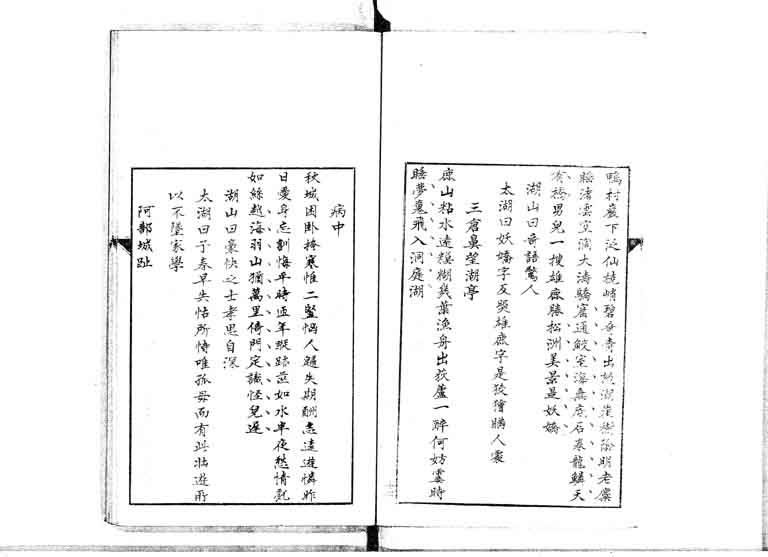 鴨村巖下泛仙橈峭碧奇奇出於湖崖樹陰明老
睡渚雲空滴大濤驕窟通鮫室海無底石龍鱗天
有橋男兒一搜雄鹿勝松洲美景是妖嬌
湖山曰奇語驚人
太湖曰妖嬌字反與雄鹿字是狡獪購人處
三倉鼻望湖亭
鹿山粘水遠糢糊幾葉漁舟出荻蘆一醉何妨霎時
睡夢魂飛入洞庭湖
病中
秋城困卧掩寒帷二豎惱人歸失期酬志遠遊憐昨
日愛身忘訓悔平時年蹤跡如水半夜愁情亂
如絲越海羽山猶萬里倚門定識怪兒遲
湖山曰豪快之士孝思自深
太湖曰子春早失怙所恃唯孤母而有此壯遊所
以不墜家學
阿部城趾